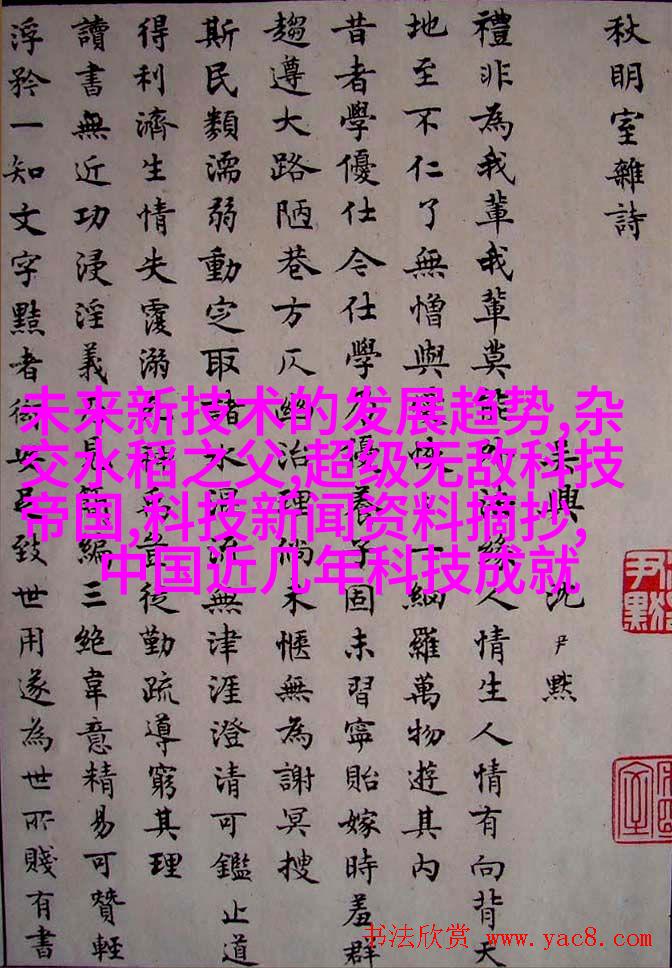 秋明室雜詩
吳興沈尹默
禮非為我輩我輩莫能外法緣人情生人情有向背天
地至不仁了無憎與愛恢一網羅萬物遊其內
昔者學優仕今仕學不優養子固未習寧貽嫁時羞群
趨遵大路陋巷方仄幽治理尚未愜無為謝冥搜
斯民類濡弱動定取諸水混流無津涯澄清可鑑止道
得利濟生情失覆溺稱禹益從勤疏導窮其理
讀書無近功浸淫義乃見簡編三絕韋意精易可贊輕
浮矜一知文字黠者足致世用遂為世所賤有書
尹默
未来新技术的发展趋势,杂
交水稻之父,超级无敌科技
帝国,科技新闻资料摘抄,
中国近几年科技成就
书法欣赏 www.yac8.com